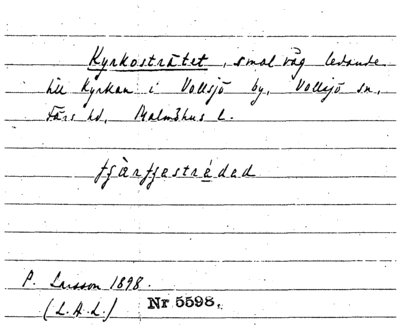 Kyrkosträtet, smal väg ledande
till Kyrkan i Vollsjö by, Vollsjö sn,
Färs hd, Malmöhus l.
P. Larsson 1898.
(L.A.L.) Nr 5598.